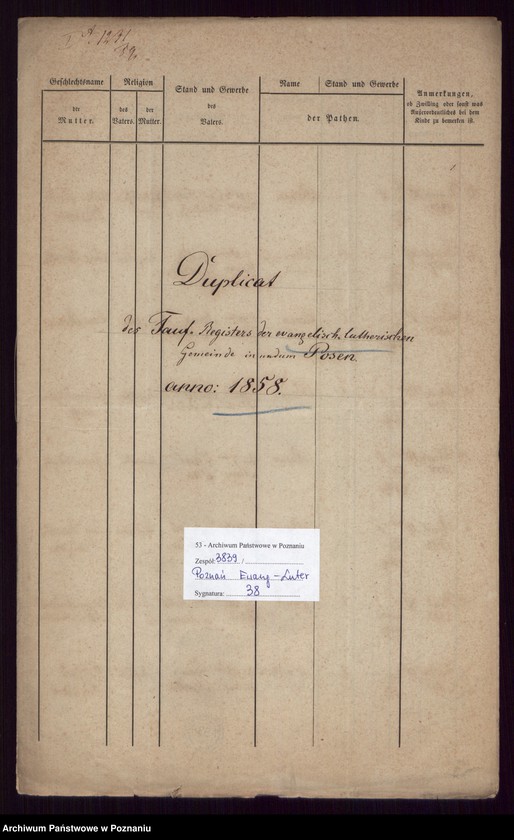 Geschlechtsname
der
Mutter.
Religion
des Vaters.
der Mutter.
Stand und Gewerbe
des
Vaters.
Name
Stand und Gewerbe
der Pathen.
Anmerkungen,
ob Zwilling oder sonst was
Außerordentliches bei dem
Kinde zu bemerken ist.
Duplicat
des Tauf-Registers der evangelisch-lutherischen
Gemeinde in Posen.
anno: 1858.
53 - Archiwum Państwowe w Poznaniu
Zespół: 3839 /
Poznań Ewang-Luter
Sygnatura: 38
Archiwum Państwowe w Poznaniu